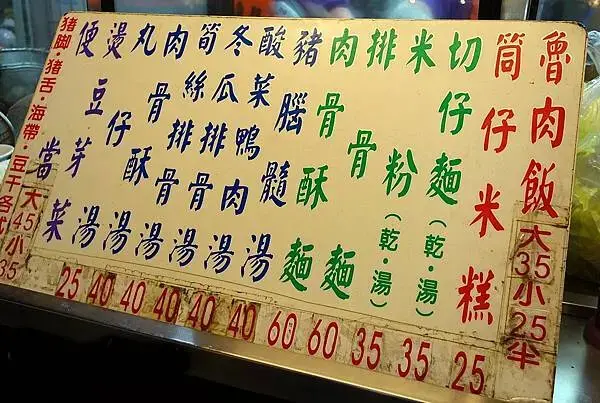 魯肉飯 大35小25半
筒仔米糕
切仔麵(乾·湯)
米粉(乾·湯)
排骨麵
肉骨酥麵
豬腦髓湯
酸菜鴨肉湯
冬瓜排骨湯
筍絲排骨湯
肉骨酥湯
丸仔湯
燙豆芽菜
便當
猪脚·猪舌·海帶·豆干各式 大45小35
25 40 40 40 40 40 60 60 35 35 25